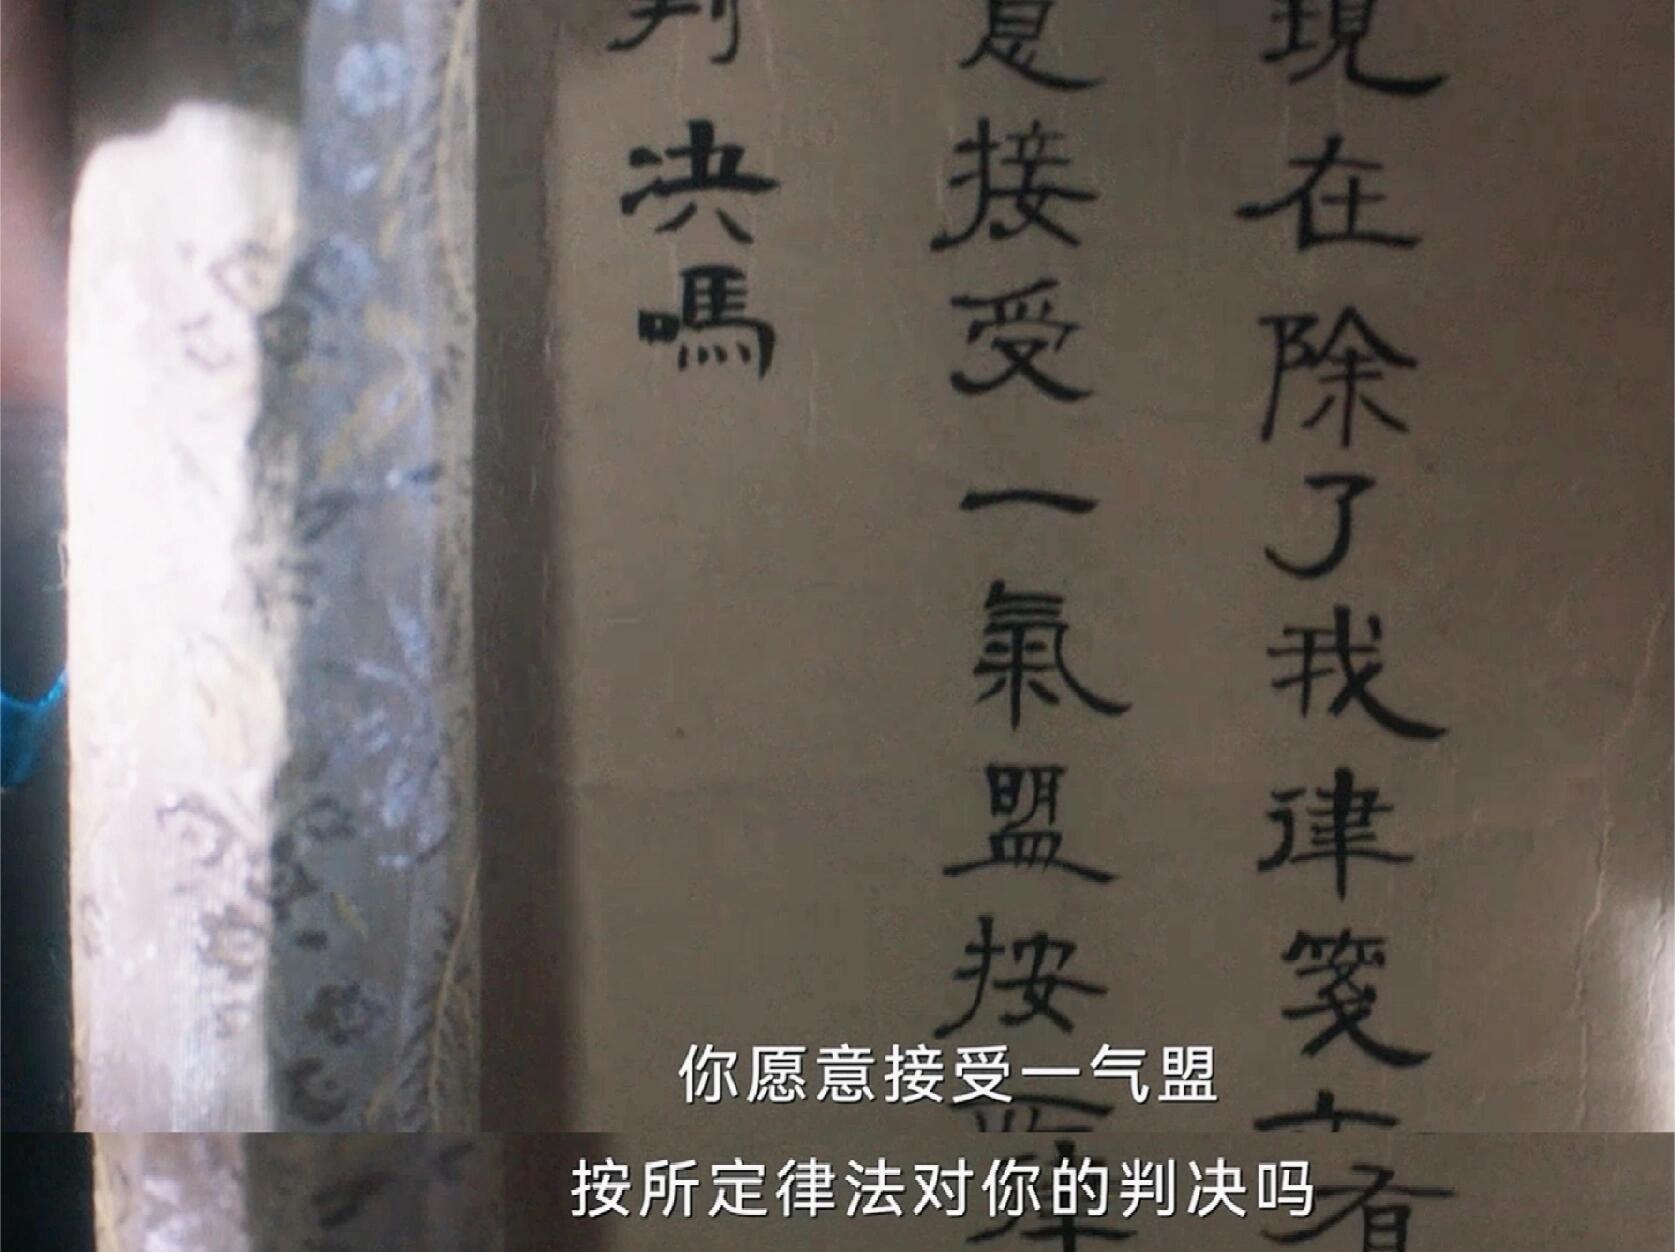 現在除了我律箋上有
意接受一氣盟按所律
判决嗎
你愿意接受一气盟
按所定律法对你的判决吗